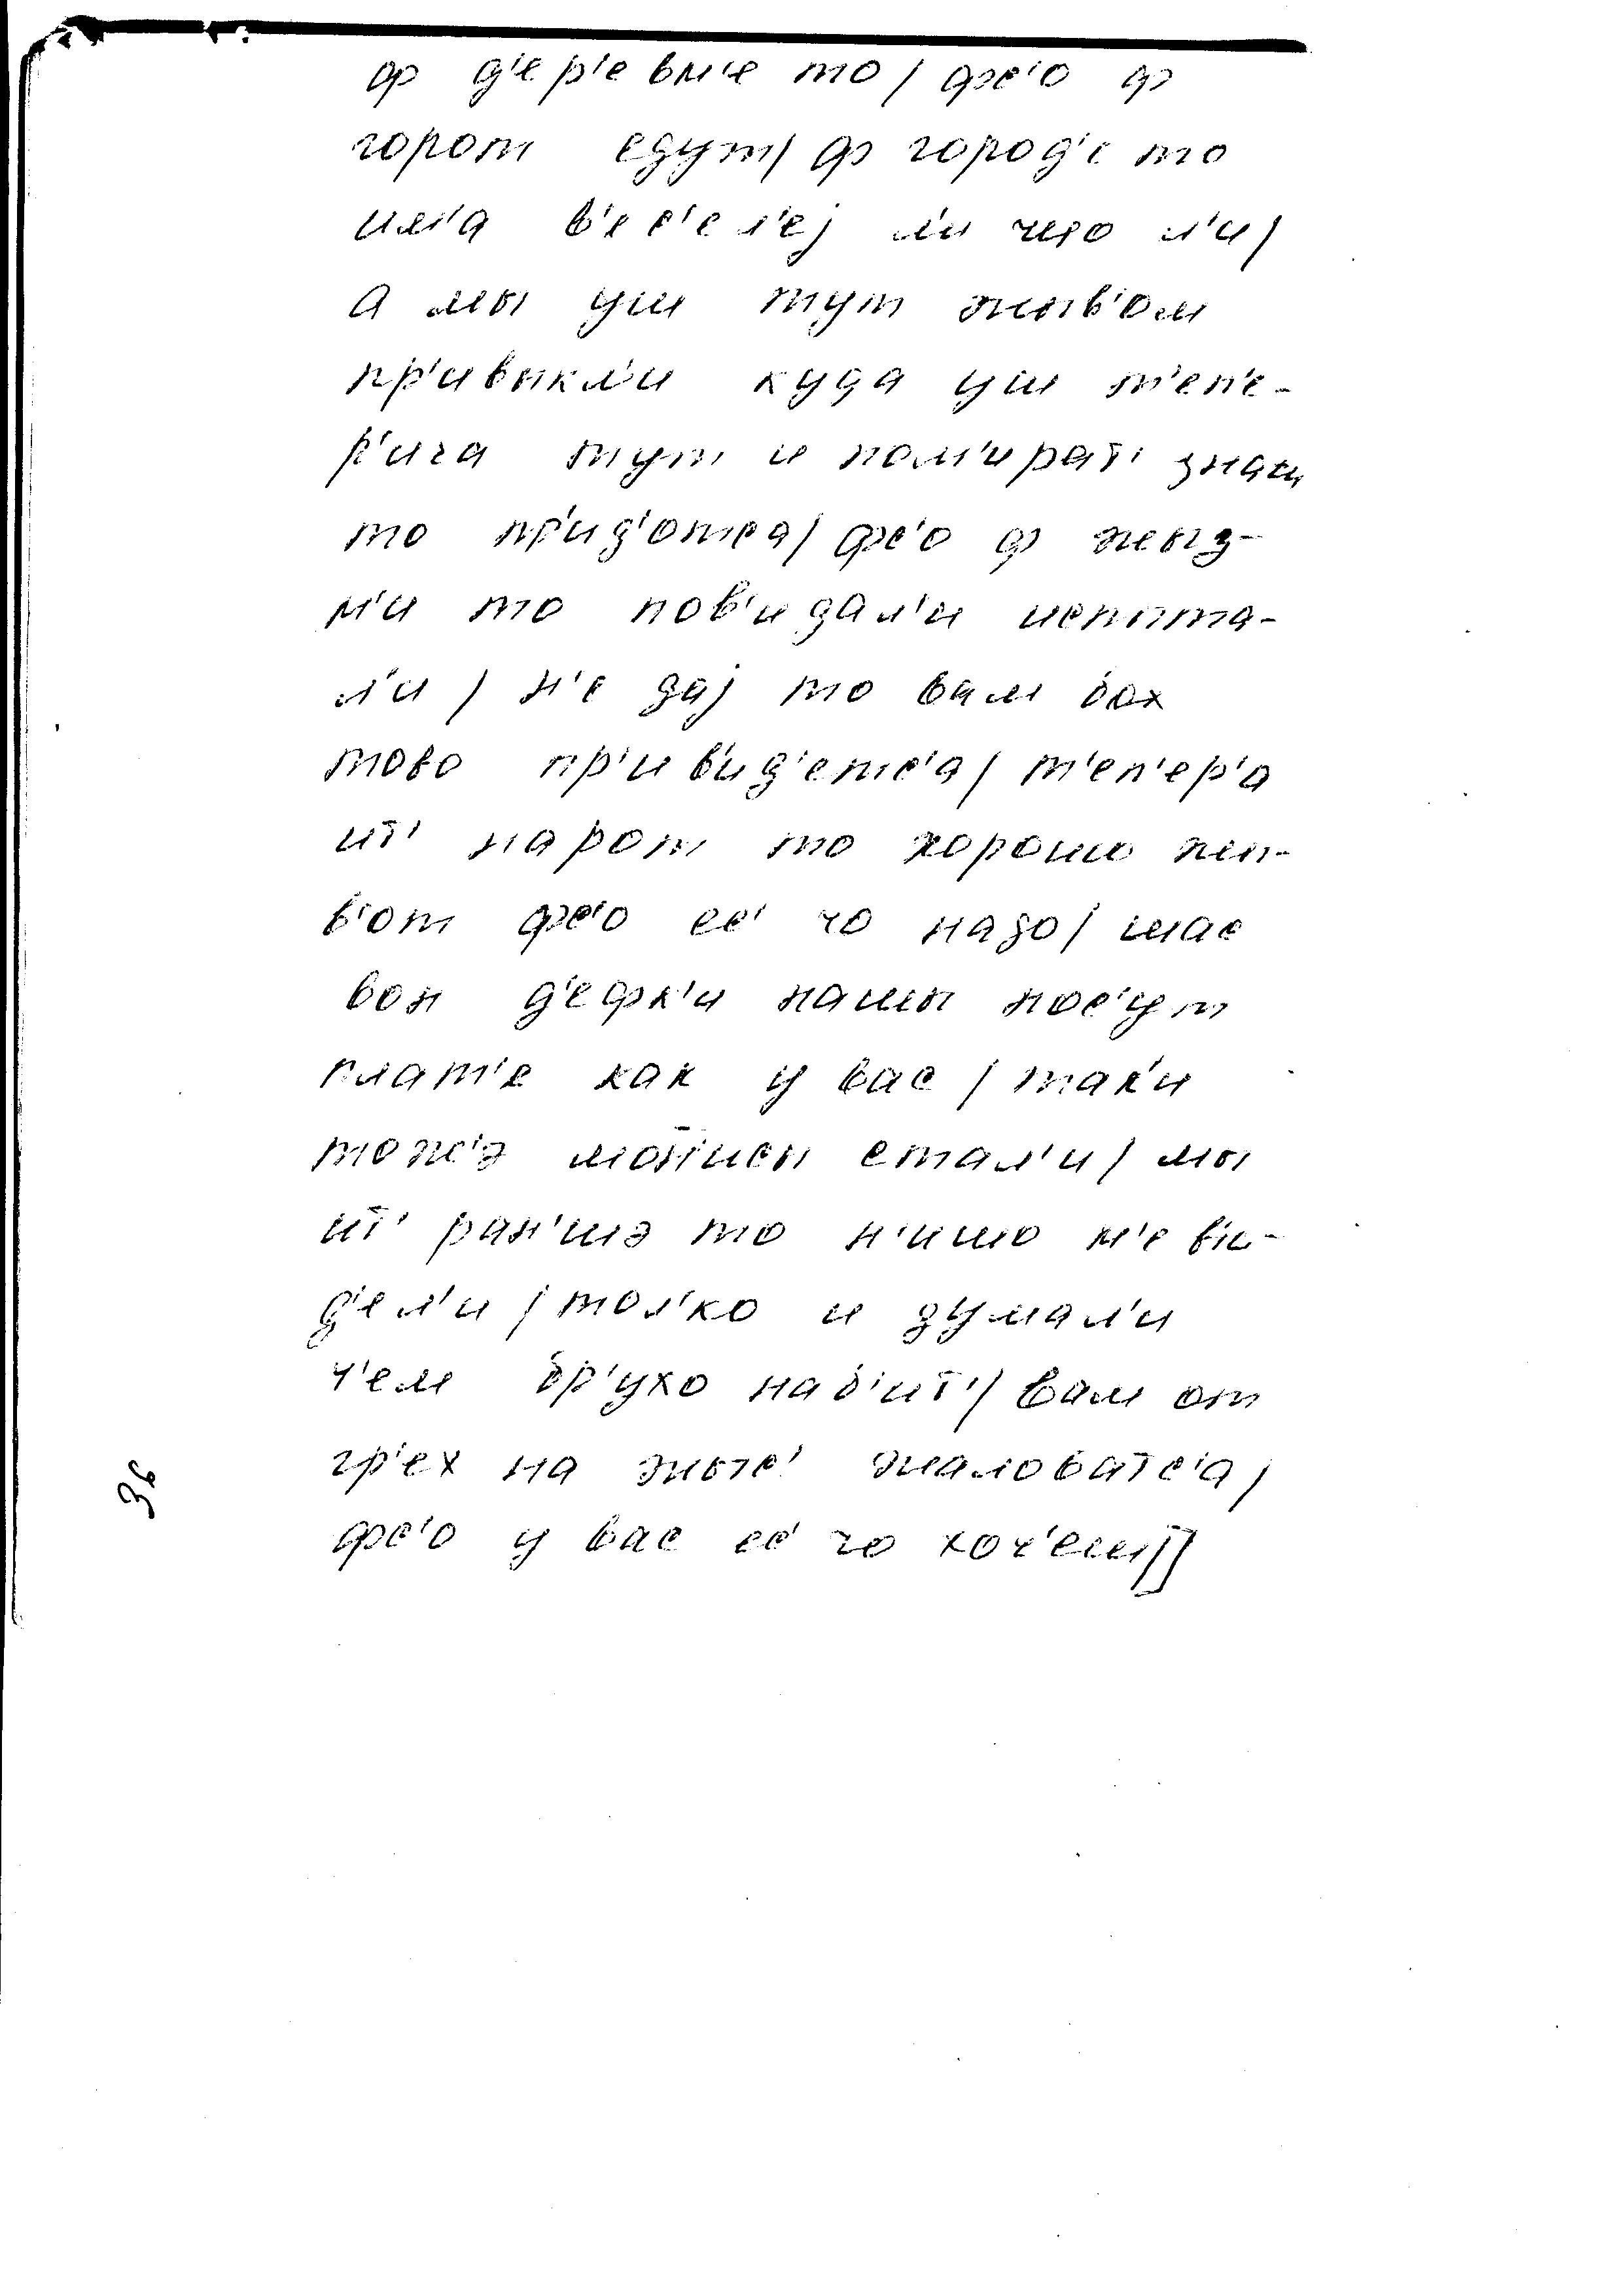 ф д'ер'евн'е то / фс'о ф
горот едут / ф город'е то
им'а в'ес'ел'ej л'и чево л'и /
а мы уш тут жыв'ом
пр'ивыкл'и куда уш т'еп'е-
р'ича тут и пом'ират' знац
то пр'ид'отса / фс'о ф жыз-
н'и то пов'идал'и испыта-
л'и / н'е даj то вам бох
тово пр'ив'ид'етс'а / т'еп'ер'а
ит' нарот то хорошо жы-
в'от фс'о ес' чо надо / шас
вон д'ефк'и нашы нос'ут
плат'е как у вас / так'и
тож'э мотысы стал'и / мы
ит' ран'шэ то н'ишо н'е ви-
д'ел'и / тол'ко и думал'и
ч'ем бр'ухо наб'ит' / вам от
гр'ех на жыс' жаловатс'а /
фс'о у вас ес' чо хоч'еш //
36